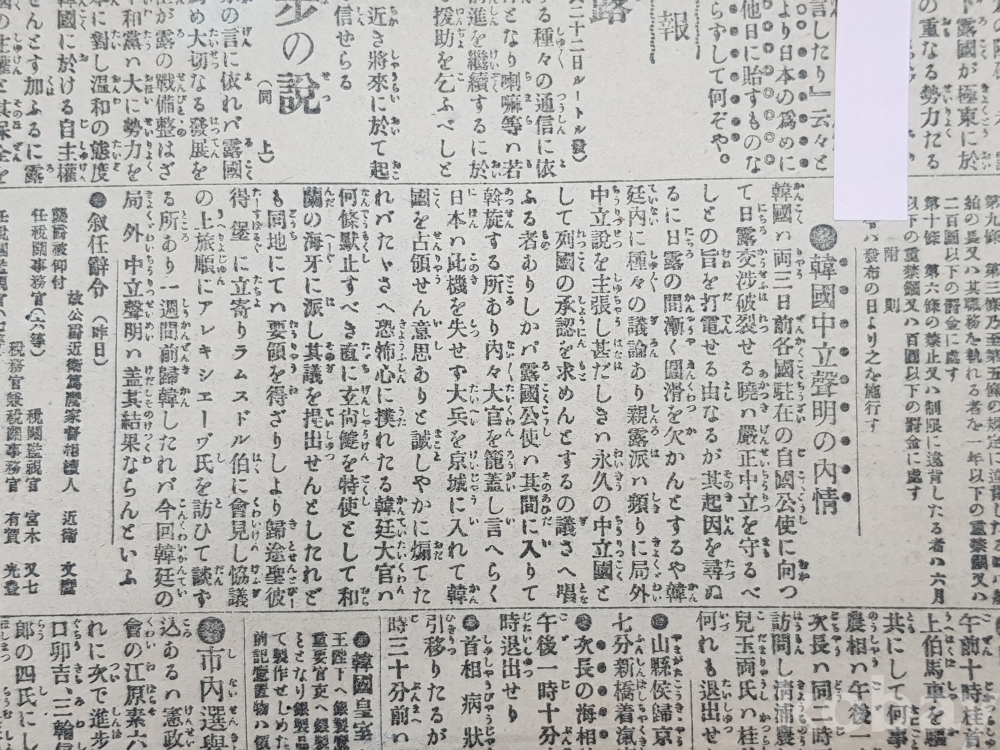 言したり』云々と
より日本の爲めに
他日に貽すものな
らずして何ぞや。
の重なる勢力たる
下露國が極東に於
報
露
二十二日ルートル發)
る種々の通信に依
となり喇嘛等ハ若
前進を繼續するに於
て援助を乞ふべしと
近き將來に於て起
信せらる
歩の説
(同上)
の言に依れバ露國
め大切なる發展を
が露の戰備整はざ
平和黨ハ大に勢力を
本に對し溫和の態度
せんとす加ふるに露
韓國に於ける自主權
第九條 第三條乃至第五條の規定に違背したる時ハ船
舶の長又ハ其職務を執れる者を一年以下の重禁錮又ハ
二百圓以下の罰金に處す
第十條 第六條の禁止又ハ制限に違背したる者ハ六月
以下の重禁錮又ハ百圓以下の罰金に處す
附則
發布の日より之を施行す
◉韓國中立聲明の内情
韓國ハ両三日前各國駐在の自國公使に向つ
て日露交渉破裂せる曉ハ嚴正中立を守るべ
しとの旨を打電せる由なるが其起因を尋ぬ
るに日露の間漸く圓滑を欠かんとするや韓
廷内に種々の議論あり親露派ハ頻りに局外
中立説を主張し甚だしきハ永久の中立國と
して列國の承認を求めんとするの議さへ唱
ふる者ありしかバ露國公使ハ其間に入りて
斡旋する所あり内々大官を籠蓋し言へらく
日本ハ此機を失せず大兵を京城に入れて韓
國を占領せん意思ありと誠しやかに煽てた
れバたゞさへ恐怖心に撲れたる韓廷大官ハ
何條默止すべき直に玄尚鍵を特使として和
蘭の海牙に派し其議を提出せんとしたれど
も同地にてハ要領を得ざりしより歸途聖彼
得堡に立寄りラムスドル伯に會見し協議
の上旅順にアレキシエーヴ氏を訪ひて談す
る所あり一週間前歸韓したれバ今回韓廷の
局外中立聲明ハ蓋其結果ならんといふ
●叙任辭令(昨日)
故公爵近衛篤麿家督相續人 近衛 文麿
襲爵被仰付
税關監視官 宮木 又七
任税關事務官(六等)
税務官兼税關事務官 有賀 光豊
午前十時桂首
上伯馬車を驅
共にして何事
農相ハ午後一
次長ハ同二時
訪問し清浦農
兒玉両氏ハ桂
何れも退出せ
●山縣侯歸京
七分新橋着滊
●次長の海相
午後一時十分
時退出せり
●首相病狀
引移りたるが
時三十分前ハ
●韓國皇室
王陛下へ銀製
重要官吏へ銀製
とこなり銀製
て製作せしめた
前記慶賀物ハ
◉市内選擧
込あるハ憲政
會の江原素六
れに次で進歩
口卯吉、三輪
郎の四氏にし